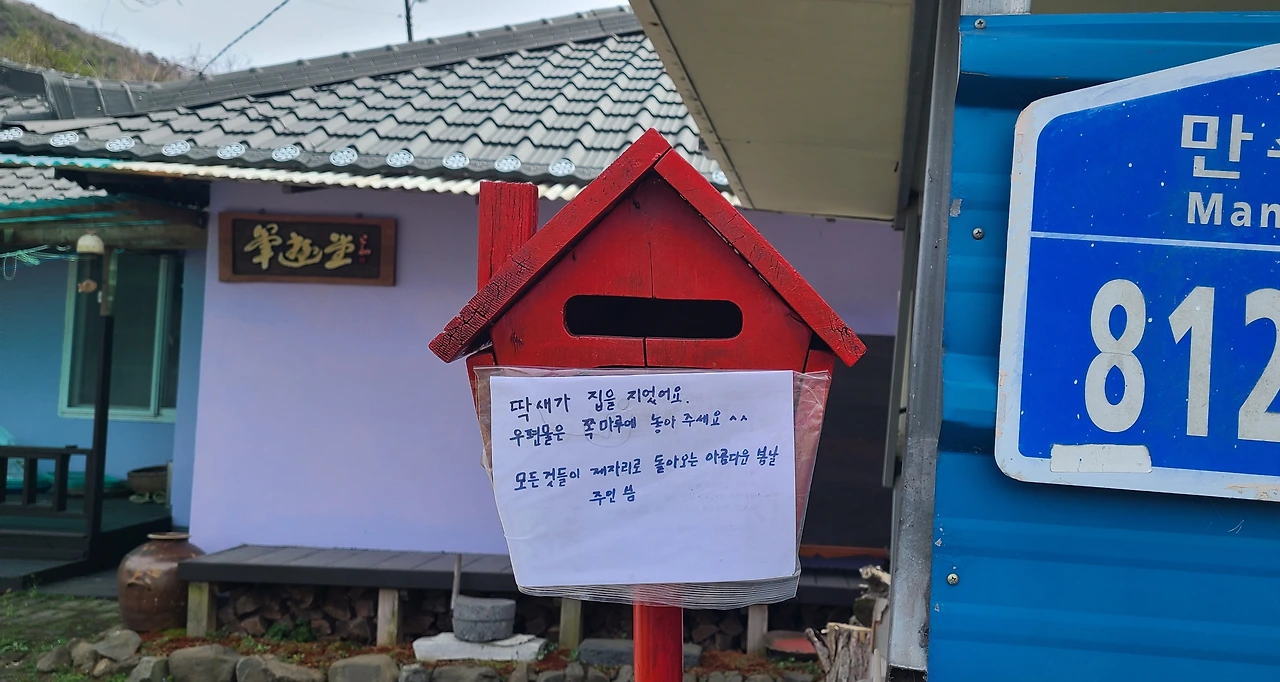 筆遊堂
딱새가 집을 지었어요.
우편물은 쪽마루에 놓아 주세요 ^^
모든것들이 제자리로 돌아오는 아름다운 봄날
주인 씀
만
Man
812